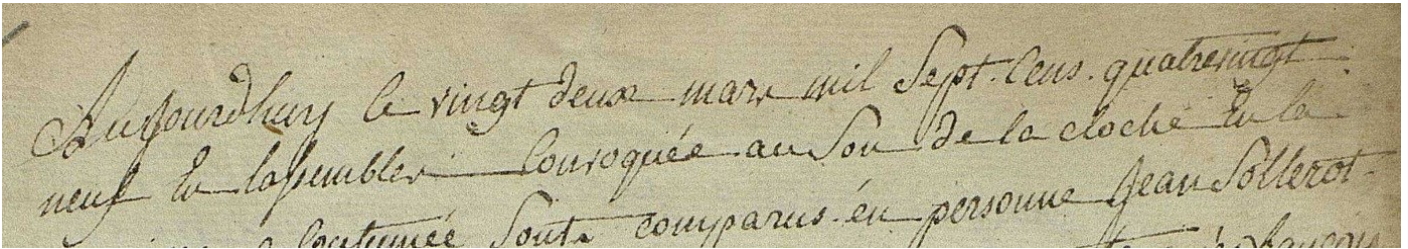 Aujourdhuy le vingt deux mars mil Sept. Cens. quatrevingt
neuf en lassemblée Convoquée au Son de la cloche en la
Coutumée Sont comparus en personne Jean Sollerot
françois